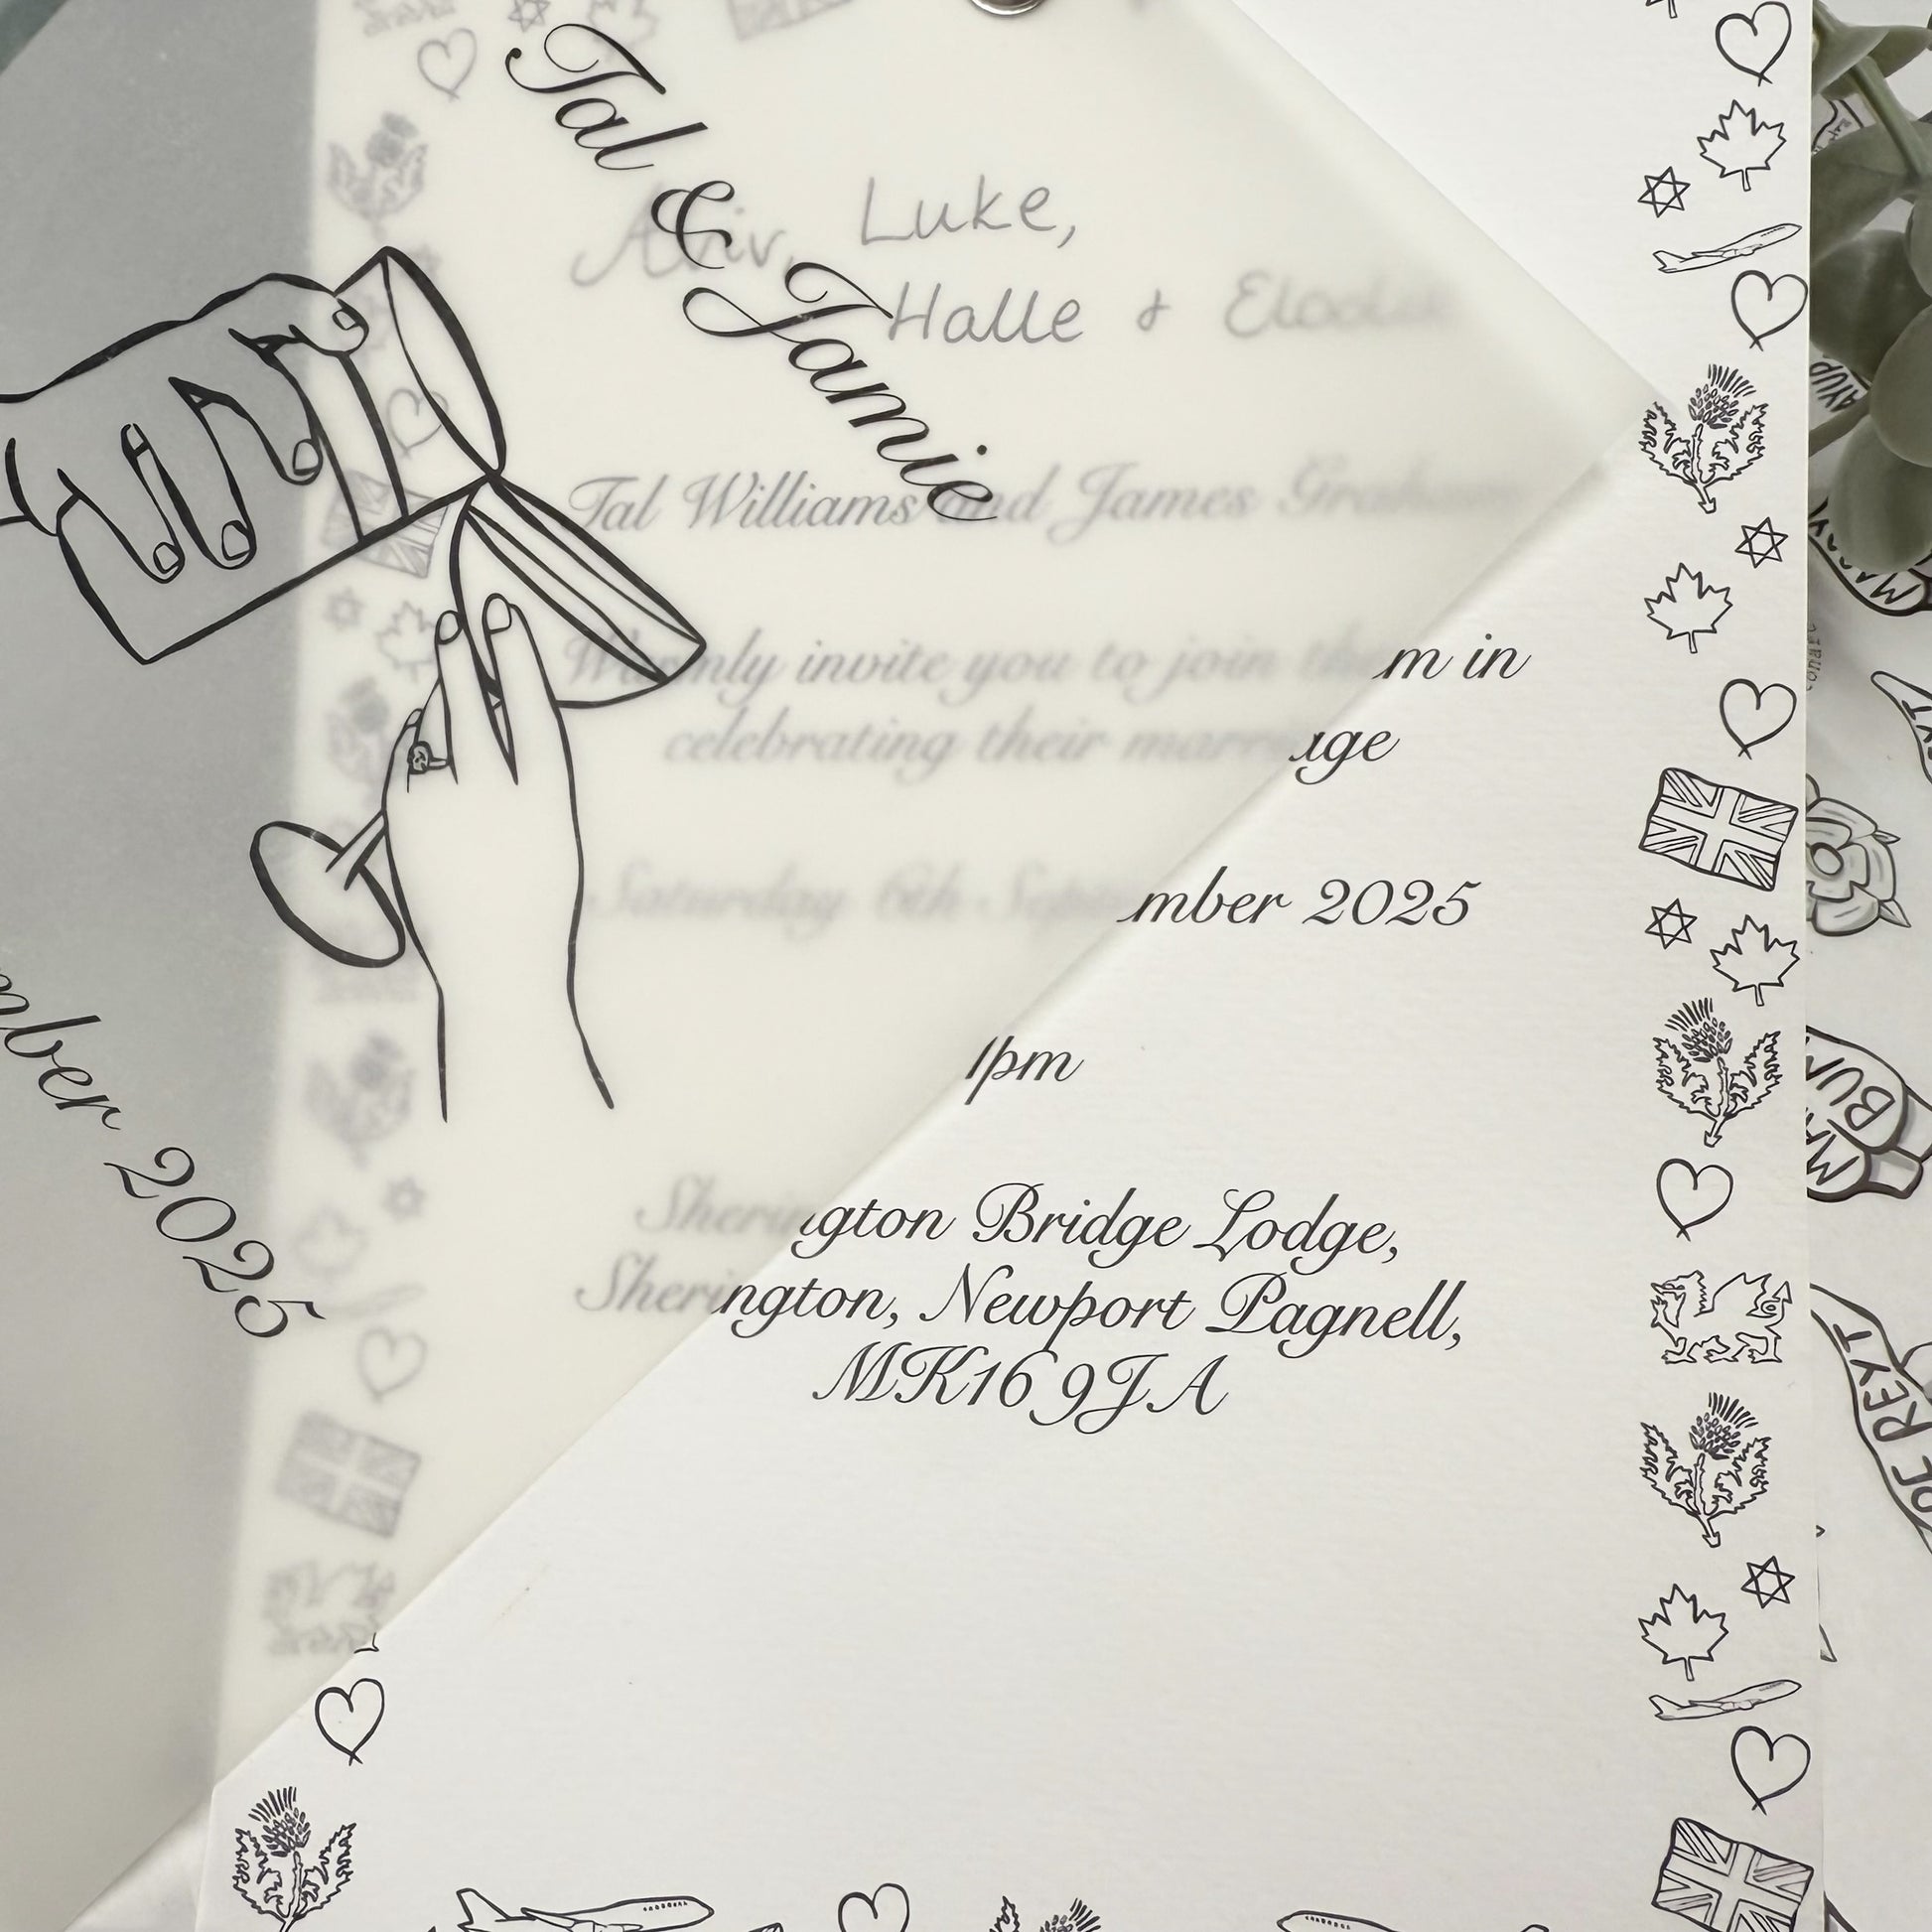 Tal & Jamie
Aviv, Luke,
Halle & Elodie
Tal Williams and James Graham
Warmly invite you to join them in
celebrating their marriage
Saturday 6th September 2025
1pm
Sherington Bridge Lodge,
Sherington, Newport Pagnell,
MK16 9JA
mber 2025
AYUP
BUM
REYT